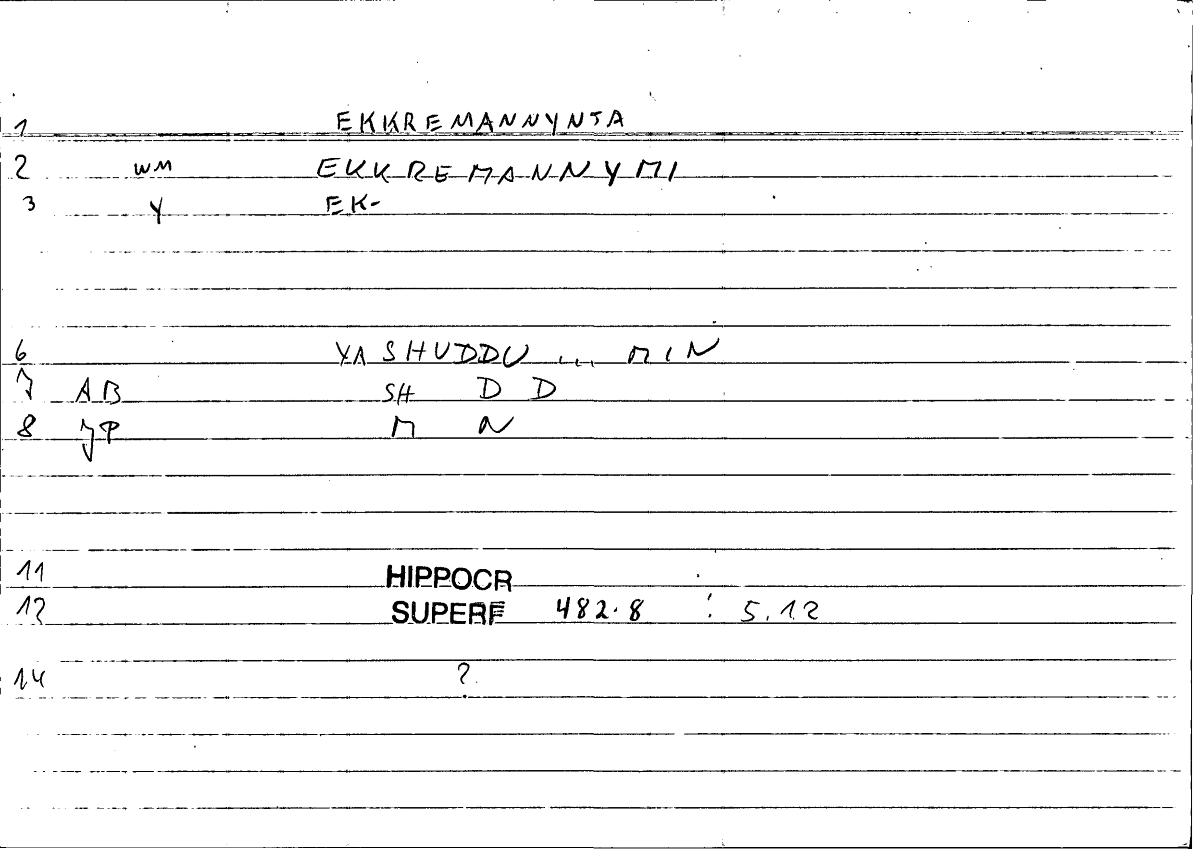 1 EKKREMANNYNTA
2 WM EKKREMANNYMI
3 Y EK-
6 YASHUDDU ... MIN
7 AB SH D D
8 JP M N
11 HIPPOCR
12 SUPERF 482.8 : 5.12
14 ?